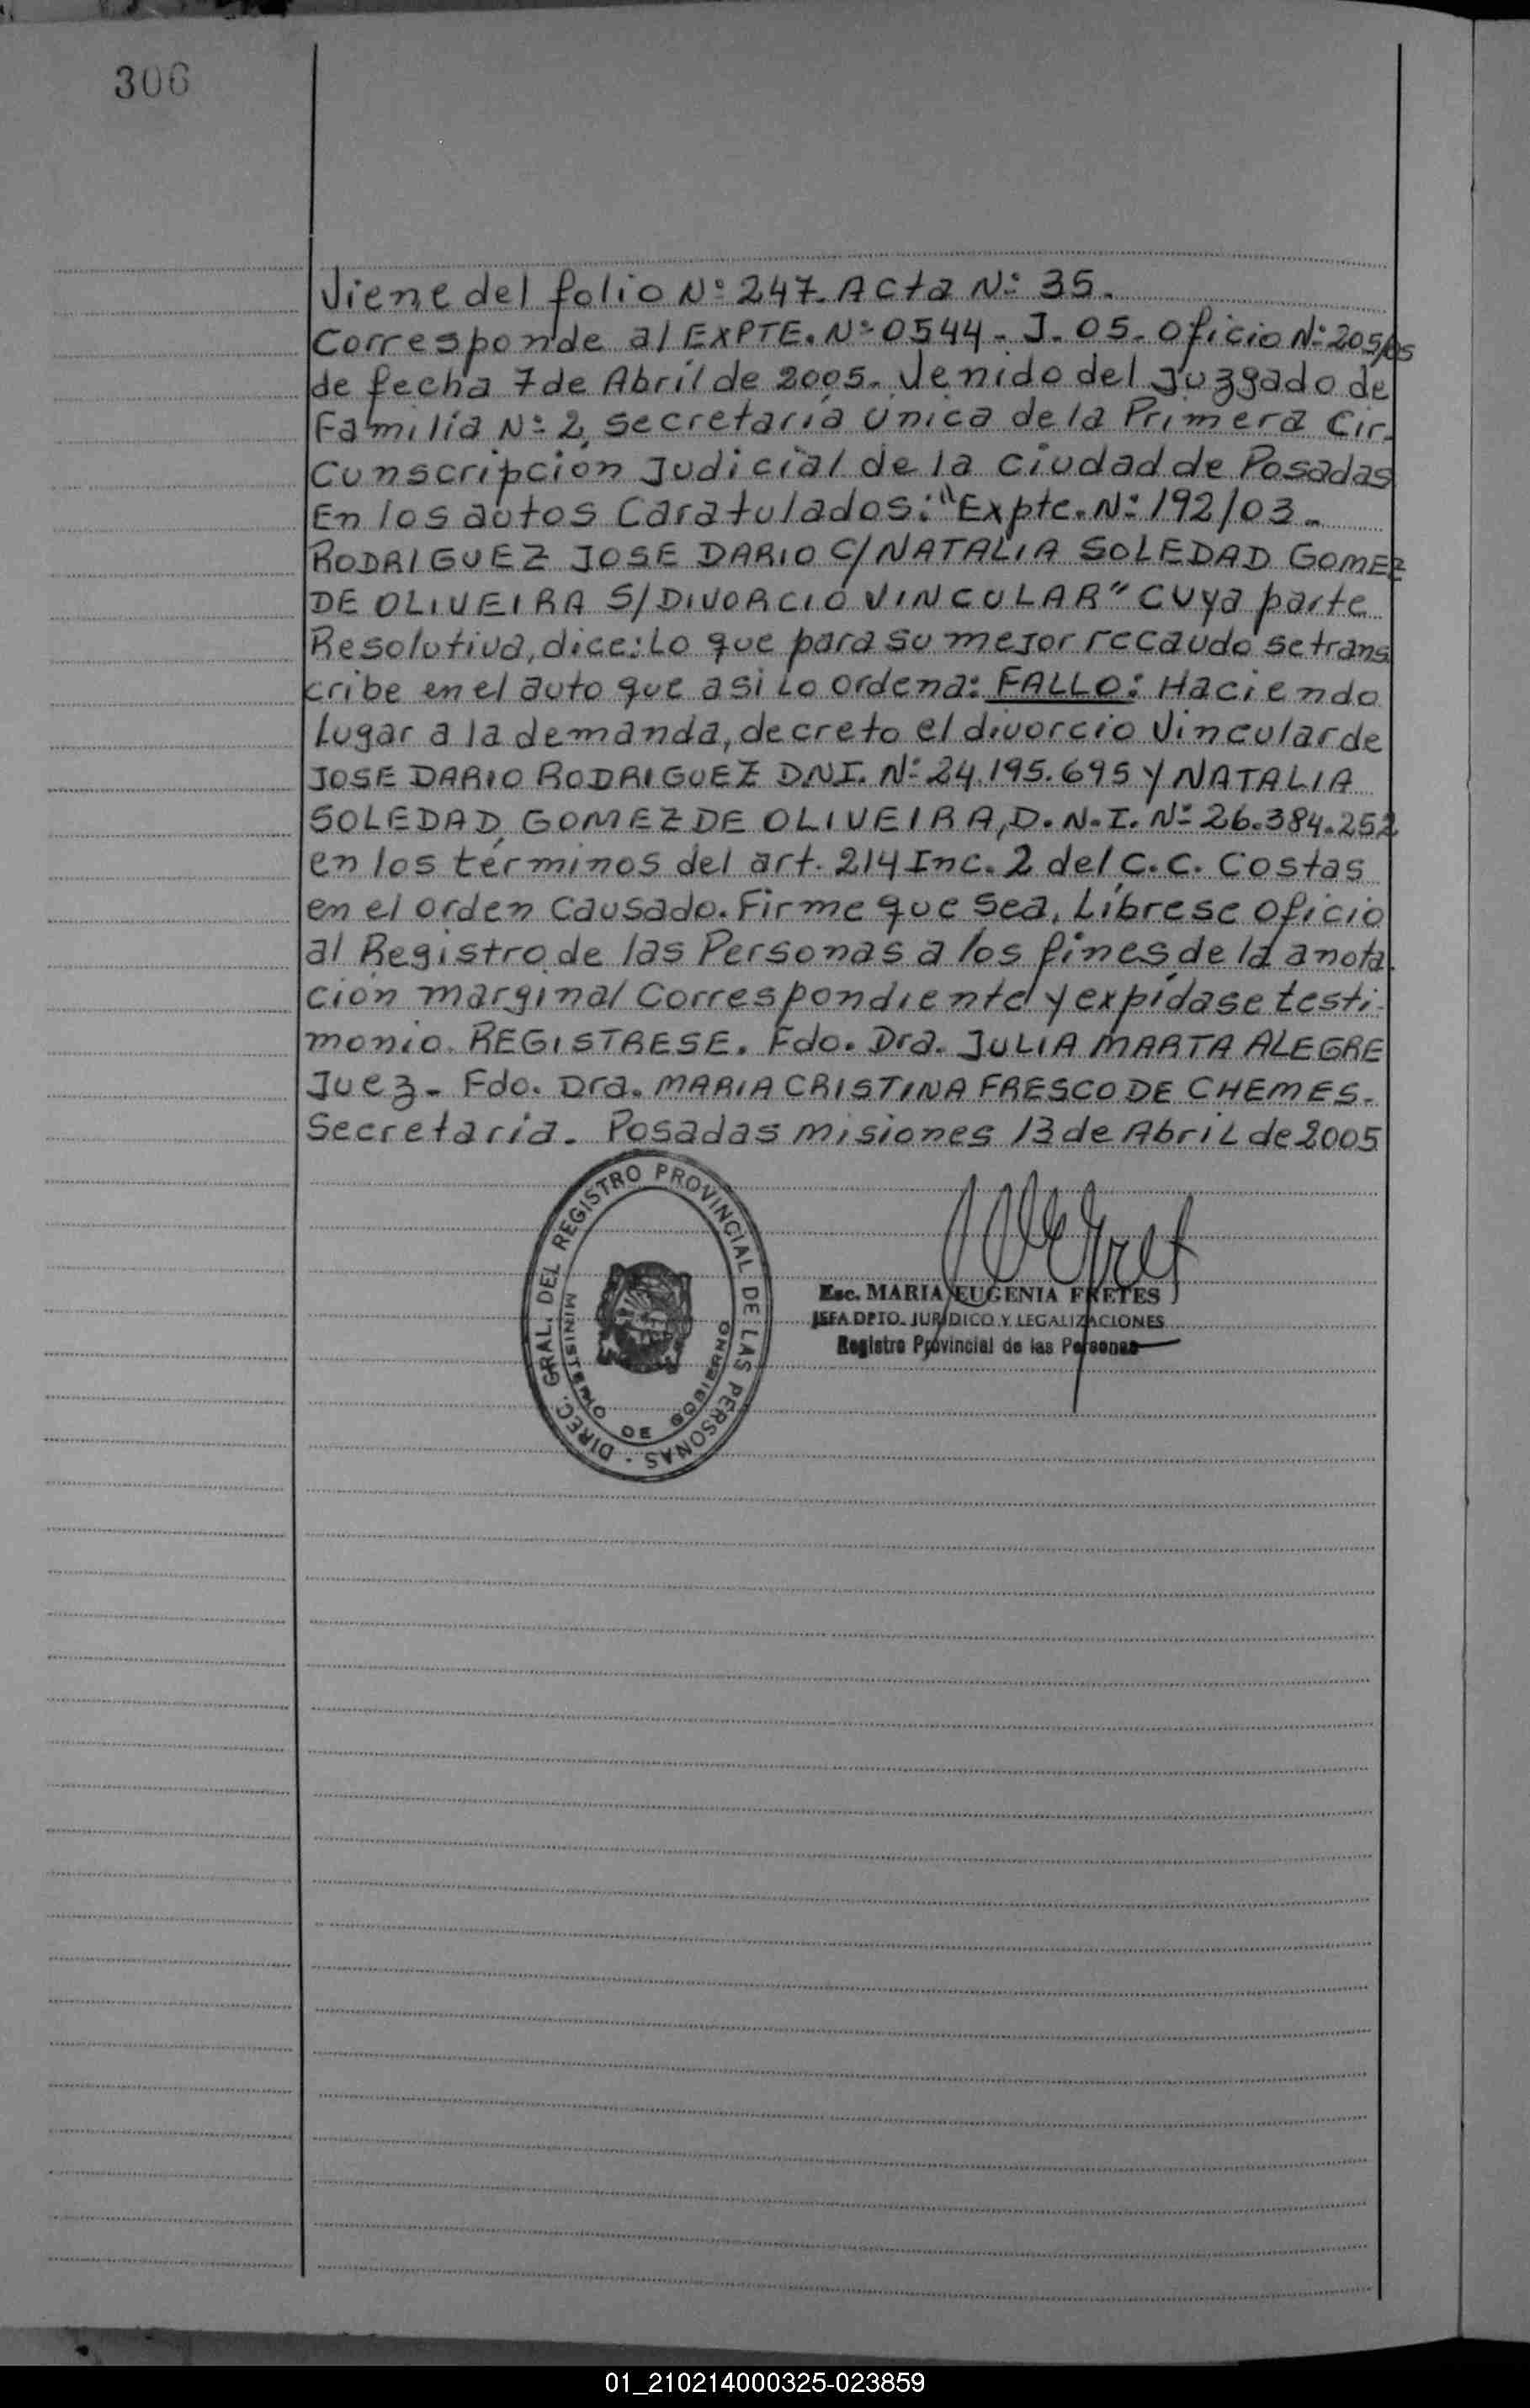 306
Viene del folio Nº 247. Acta Nº 35.
Corresponde al EXPTE. Nº 0544 - J. 05. Oficio Nº 205/05
de fecha 7 de Abril de 2005. Venido del Juzgado de
Familia Nº 2, Secretaría Única de la Primera Cir-
cunscripción Judicial de la Ciudad de Posadas
En los autos Caratulados: "Expte. Nº 192/03.
RODRIGUEZ JOSE DARIO C/NATALIA SOLEDAD GOMEZ
DE OLIVEIRA S/DIVORCIO VINCULAR" Cuya parte
Resolutiva, dice: Lo que para su mejor recaudo se trans
cribe en el auto que asi Lo ordena: FALLO: Haciendo
Lugar a la demanda, decreto el divorcio Vincular de
JOSE DARIO RODRIGUEZ DNI. Nº 24.195.695 Y NATALIA
SOLEDAD GOMEZ DE OLIVEIRA, D.N.I. Nº 26.384.252
en los términos del art. 214 Inc. 2 del C.C. Costas
en el orden Causado. Firme que Sea, Líbrese Oficio
al Registro de las Personas a los fines de la anota
ción marginal Correspondiente y expídase testi-
monio. REGISTRESE. Fdo. Dra. JULIA MARTA ALEGRE
Juez - Fdo. Dra. MARIA CRISTINA FRESCO DE CHEMES.
Secretaria. Posadas Misiones 13 de Abril de 2005
DIREC. GRAL. DEL REGISTRO PROVINCIAL DE LAS PERSONAS
MINISTERIO DE GOBIERNO
Esc. MARIA EUGENIA FRETES
JEFA DPTO. JURIDICO Y LEGALIZACIONES
Registro Provincial de las Personas
01_210214000325-023859